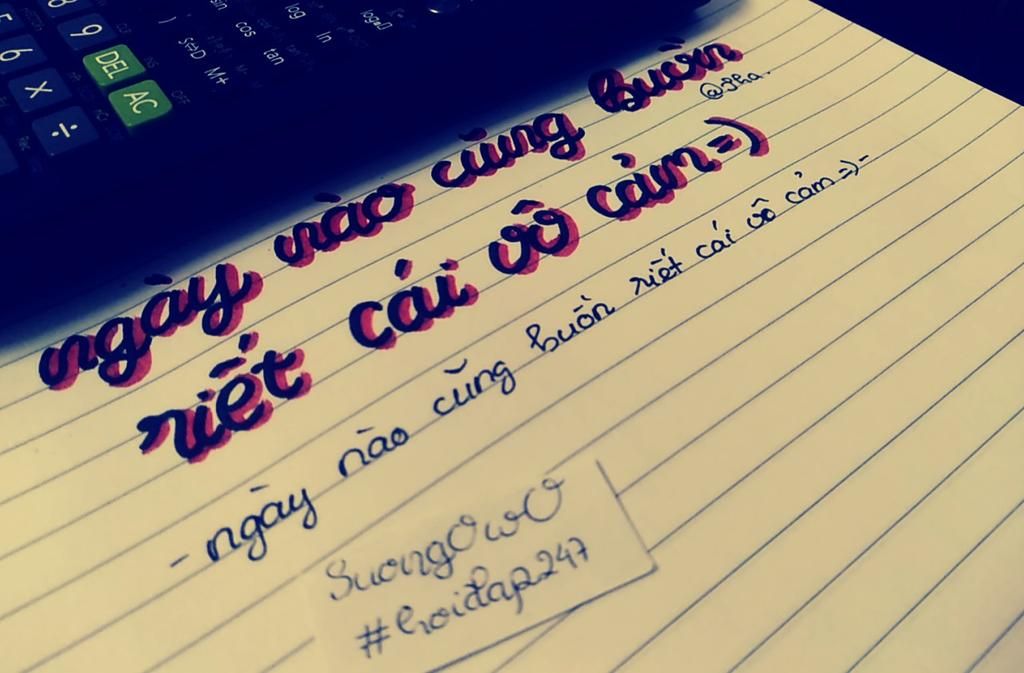 8 9 DEL
6 × ÷ AC
) S⇔D M+
sin cos tan
log ln
log
ngày nào cũng buồn
@gha.
riết cái vô cảm=)
- ngày nào cũng buồn riết cái vô cảm=)-
SuongOwO
#hoidap247